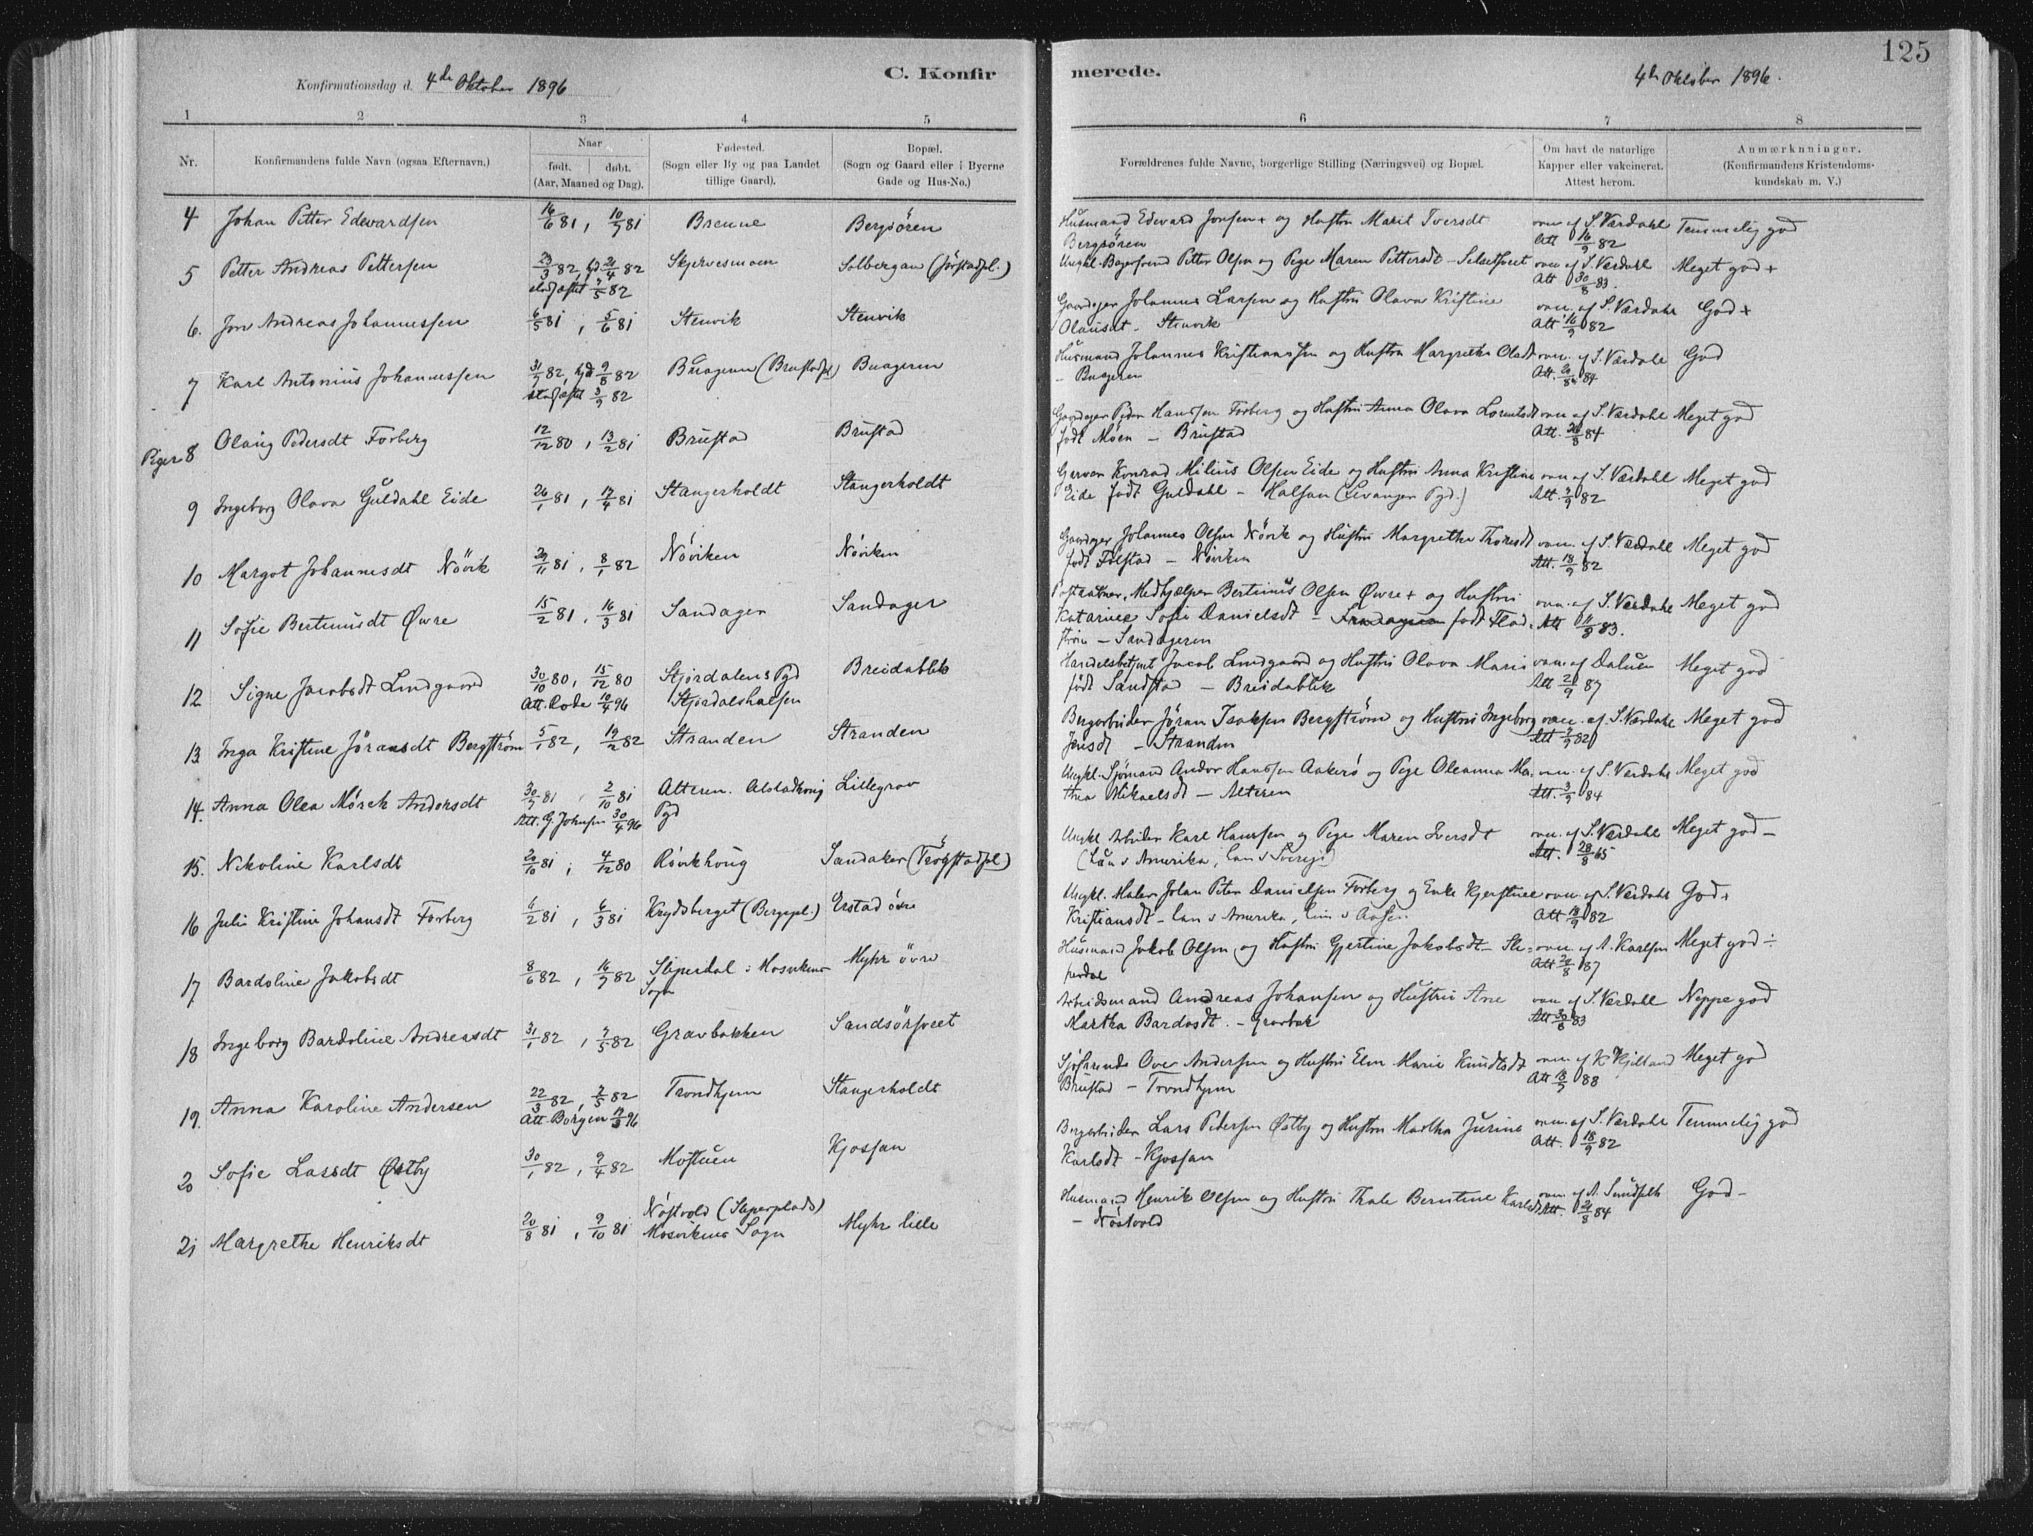 125
Konfirmationsdag d. 4de Oktober 1896
C. Konfirmerede.
4de Oktober 1896.
1 2 3 4 5 6 7 8
Nr.
Konfirmandens fulde Navn (ogsaa Efternavn.)
Naar
født. døbt.
(Aar, Maaned og Dag).
Fødested.
(Sogn eller By og paa Landet
tillige Gaard).
Bopæl.
(Sogn og Gaard eller i Byerne
Gade og Hus-No.)
Forældrenes fulde Navne, borgerlige Stilling (Næringsvei) og Bopæl.
Om havt de naturlige
Kapper eller vakcineret.
Attest herom.
Anmærkninger.
(Konfirmandens Kristendoms-
kundskab m. V.)
4 Johan Petter Edevardsen 16/6 81, 10/7 81 Brenne Bergsören Husmand Edevard Jonsen + og Hustru Marit Iversdt vac. af S. Værdahl Temmelig god
Bergsören Att 16/9 82
5 Petter Andreas Pettersen 23/3 82, hjd 24/4 82 Skjervesmoen Solbergan (Jörstadpl.) Ungkl. Petter Olsen og Pige Maren Pettersdt vac. af S. Værdahl Meget god +
stadfæstet 7/5 82 Att 30/8 83.
6. Jon Andreas Johannessen 6/5 81, 5/6 81 Stenvik Stenvik Gaardeger Johannes Larsen og Hustru Olava Kristine vac. af S. Værdahl God +
Olausdt. Stenvik Att 16/9 82
7 Karl Antonius Johannessen 31/7 82, hjd 9/8 82 Buageren (Brustadpl) Buageren Husmand Johannes Kristianssen og Hustru Margrethe Olsdt vac. af S. Værdahl God
stadfæstet 3/9 82 - Buageren Att. 84
Piger 8 Olaug Pedersdt Forberg 12/12 80, 13/2 81 Brustad Brustad Gaardeger Peder Hanssen Forberg og Hustru Anna Olava Lorntsdt vac. af S. Værdahl Meget god
født Moen - Brustad Att. 84
9 Ingeborg Olava Guldahl Eide 26/1 81, 17/4 81 Stangerholdt Stangerholdt Garver Konrad Milius Olsen Eide og Hustru Anna Kristine vac. af S. Værdahl Meget god
Eide født Guldahl - Halsan (Levanger Pgd.) Att. 82
10 Margot Johannesdt Növik 29/11 81, 8/1 82 Növiken Növiken Gaardeger Johannes Olsen Növik og Hustru Margrethe Thoresdt vac. af S. Værdahl Meget god
født Folstad - Növiken Att. 18/9 82
11 Sofie Bertinusdt Øvre 15/2 81, 16/3 81 Sandager Sandager Medhjælper Bertinus Olsen Øvre + og Hustru vac. af S. Værdahl Meget god
Katarine Sofie Danielsdt - født Flad- Att 11/9 83.
strøm - Sandageren
12 Signe Jacobsdt Lindgaard 30/10 80, 15/12 80 Stjördalens Pgd Breidablik Handelsbetjent Jacob Lindgaard og Hustru Olava Marie vac. af Daluen Meget god
Att. Rode 10/4 96 Stjördalshalsen født Sandstad - Breidablik Att 21/9 87
13 Inga Kristine Jöransdt Bergström 5/1 82, 19/2 82 Stranden Stranden Bergarbeider Jöran Isaksen Bergström og Hustru Ingeborg vac. af S. Værdahl Meget god
Jensdt - Stranden Att 82
14. Anna Olea Mörch Andorsdt 30/7 81, 2/10 81 Alteren. Alstadhaug Lillegrav Ungkl. Sjömand Andor Hanssen Aakerö og Pige Oleanna Mar- vac. af S. Værdahl Meget god
Att. G. Johnsen 30/4 96 Pgd thea Mikaelsdt - Alteren Att. 3/9 84
15. Nikoline Karlsdt 20/10 81, 4/12 80 Rövikhaug Sandaker (Trögstadpl) Ungkl. Arbeider Karl Hanssen og Pige Maren Iversdt vac. af S. Værdahl Meget god -
(han i Amerika, hun i Sverige) Att. 28/8 65
16 Julie Kristine Johansdt Forberg 6/2 81, 6/3 81 Krydsberget (Bergspl.) Ystad övre Ungkl. Maler Johan Peter Danielsen Forberg og Enke Kjerstine vac. af S. Værdahl God +
Kristiansdt - han i Amerika, hun i Aasen Att 18/9 82
17 Bardoline Jakobsdt 8/6 82, 16/7 82 Sliperdal i Mosvikens Myhr övre Husmand Jakob Olsen og Hustru Gjertine Jakobsdt - Sli- vac. af A. Karlsen Meget god ÷
Sogn perdal Att 24/8 87
18 Ingeborg Bardoline Andreasdt 31/1 82, 7/5 82 Gravbakken Sandsörsveet Arbeidsmand Andreas Johansen og Hustru Ane vac. af S. Værdahl Neppe god
Martha Bardosdt. - Gravbak Att 30/8 83
19. Anna Karoline Andersen 22/3 82, 7/5 82 Trondhjem Stangerholdt Sjöfarende Ove Andersen og Hustru Elen Marie Knudtsdt vac. af K. Kjelland Meget god
Att Borgen 96 Brustad - Trondhjem Att 88
20 Sofie Larsdt Østby 30/1 82, 9/4 82 Mostuen Kjossan Bergarbeider Lars Pedersen Østby og Hustru Martha Jurine vac. af S. Værdahl Temmelig god
Karlsdt - Kjossan Att. 18/9 82
21 Margrethe Henriksdt 20/8 81, 9/10 81 Nöstvold (Sliperplads) Myhr lille Husmand Henrik Olsen og Hustru Thale Berntine Karlsdt vac. af A. Sundseth God -
Mosvikens Sogn - Nöstvold Att. 84